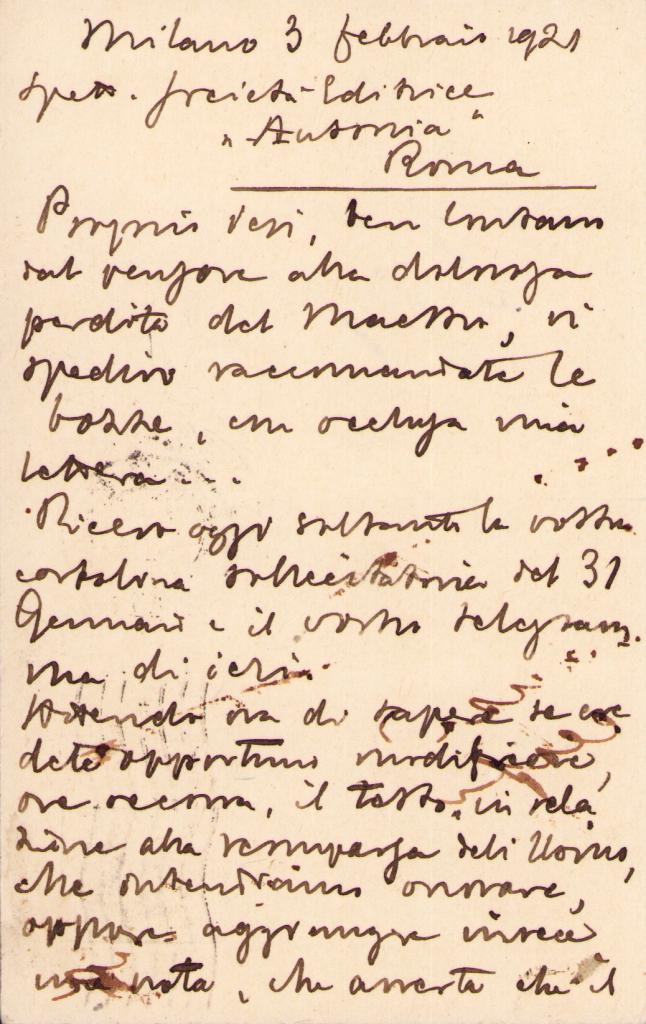 Milano 3 febbraio 1921
Spett. Società Editrice
"Ausonia"
Roma
Proprio ieri, ben lontano
dal pensare alla dolorosa
perdita del Maestro, vi
spedivo raccomandate le
bozze, con acclusa mia
lettera...
Ricevo oggi soltanto la vostra
cartolina sollecitatoria del 31
Gennaio e il vostro telegram
ma di ieri.
Attendo ora di sapere se cre
dete opportuno modificare,
ove occorra, il testo, in rela
zione alla scomparsa dell'Uomo,
che intendiamo onorare,
oppure aggiungere invece
una nota, che avverta che il